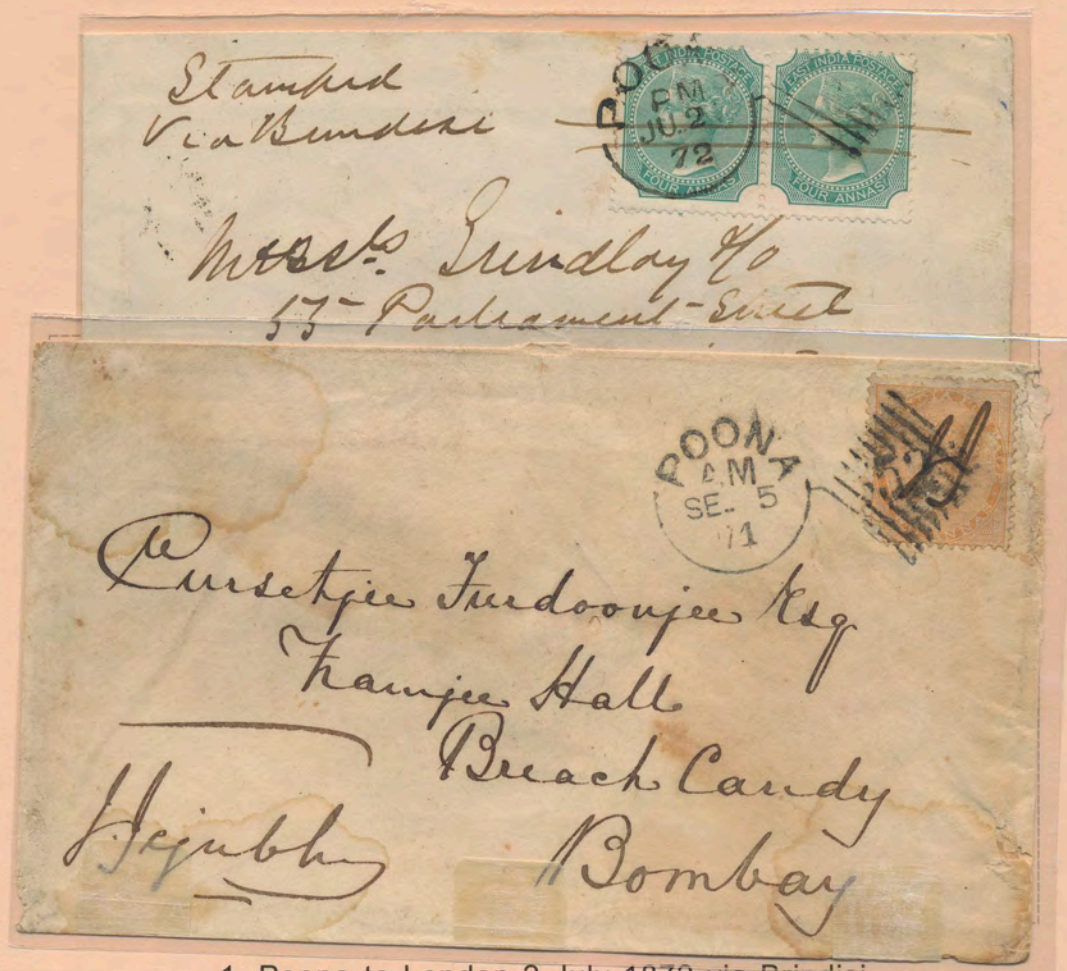 Stamped
Via Brindisi
POONA
PM
JU. 2
72
EAST INDIA POSTAGE
FOUR ANNAS
EAST INDIA POSTAGE
FOUR ANNAS
Messrs. Grindlay & Co
55 Parliament Street
POONA
AM
SE. 5
71
Cursetjee Furdoonjee Esq
Framjee Hall
Breach Candy
Bombay
1. Poona to London 2 July 1872 via Brindisi